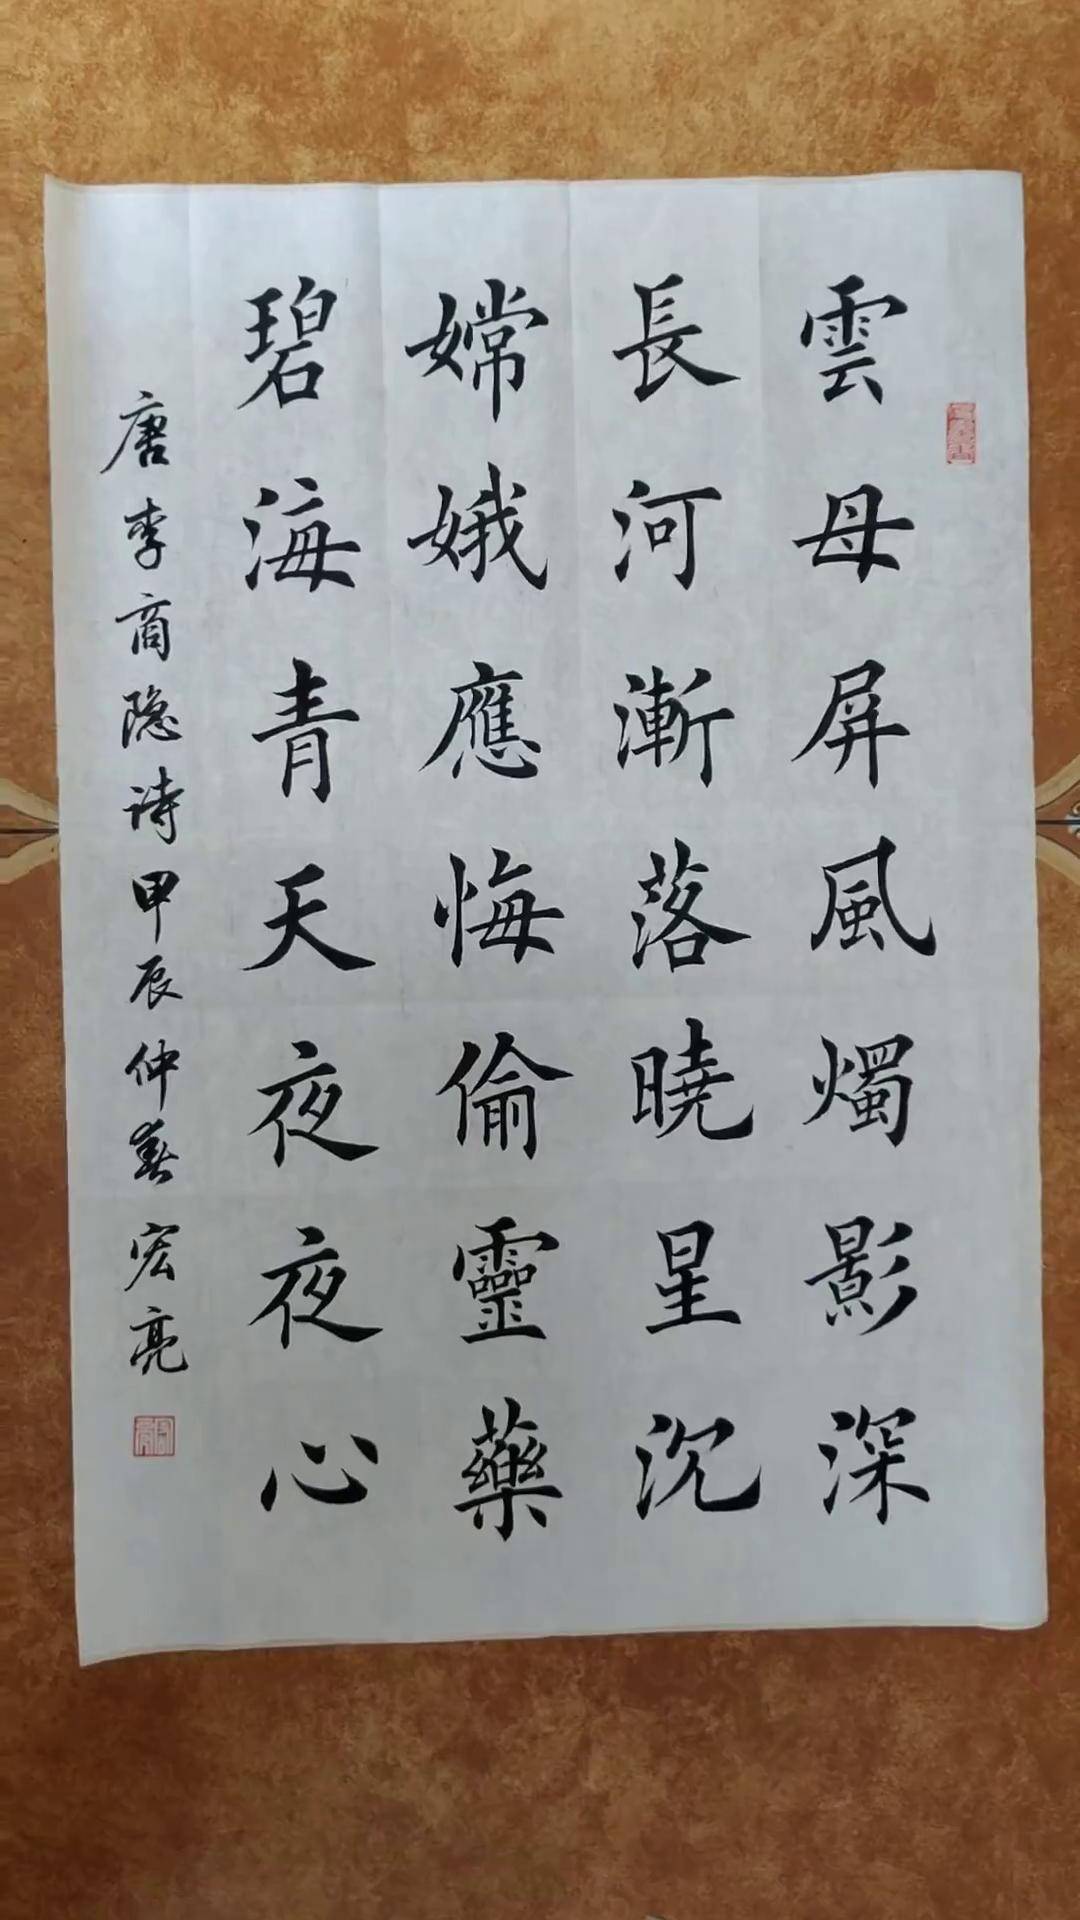 雲母屏風燭影深
長河漸落曉星沉
嫦娥應悔偷靈藥
碧海青天夜夜心
唐李商隐诗甲辰仲春宏亮